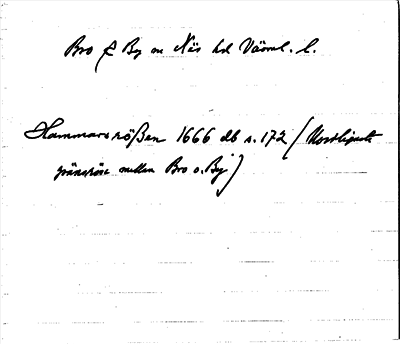 Bro & By sn Näs hd Värml. l.
Hammarsrößen 1666 db s. 172 (Nordligaste
gränsröse mellan Bro o. By)